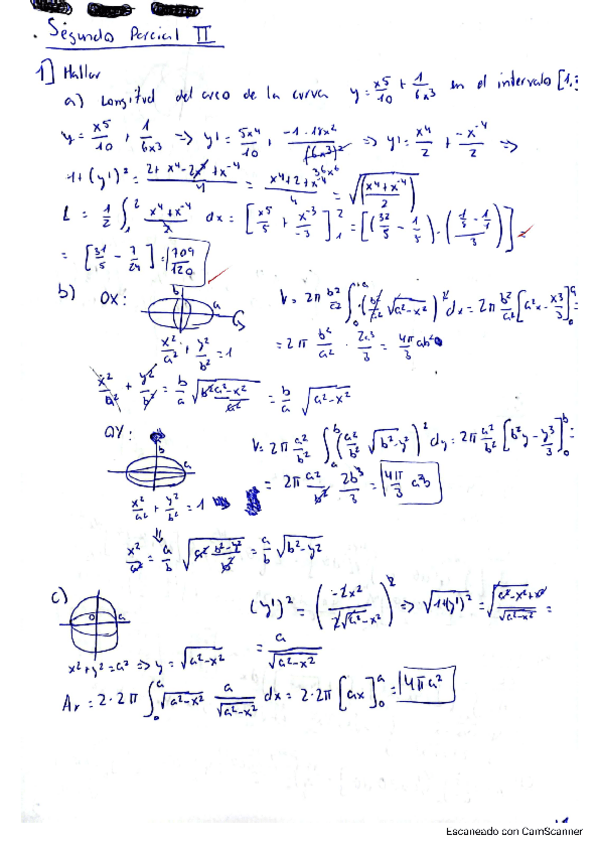 . Segundo Parcial II
1] Hallar
a) Longitud del arco de la curva y = x^5/10 + 1/6x^3 en el intervalo [1,
y = x^5/10 + 1/6x^3 => y' = 5x^4/10 + -1·18x^2/(6x^3)^2 => y' = x^4/2 + -x^-4/2 =>
36x^6
1+(y')^2 = = x^4+2+x^-4/4 = √((x^4+x^-4)/2)
L = 1/2 ∫_1^2 x^4+x^-4 dx = [x^5/5 + x^-3/-3]_1^2 = [(32/5 - 1/5) -
= [31/5 - 7/24] = 709/120
b) OX: b a
V = 2π b^2/a^2 dx = 2π b^2/a^2 [a^2x - x^3/3]_0^a =
x^2/a^2 + y^2/b^2 = 1
= 2π b^2/a^2 · 2a^3/3 = 4π/3 ab^2
x^2/a^2 + y^2/b^2 = b/a = b/a √(a^2-x^2)
OY: b a
V = 2π a^2/b^2 dy = 2π a^2/b^2 [b^2y - y^3/3]_0^b =
= 2π a^2/b^2 2b^3/3 = 4π/3 a^2b
x^2/a^2 + y^2/b^2 = 1
x^2/a^2 = a/b = a/b √(b^2-y^2)
c) 0 a
(y')^2 = (-2x/2√(a^2-x^2))^2 => √(1+(y')^2) = √(a^2-x^2+x^2)/√(a^2-x^2) =
x^2+y^2=a^2 => y = √(a^2-x^2)
= a/√(a^2-x^2)
= 2·2π ∫_0^a √(a^2-x^2) a/√(a^2-x^2) dx = 2·2π [ax]_0^a = 4πa^2
Escaneado con CamScanner